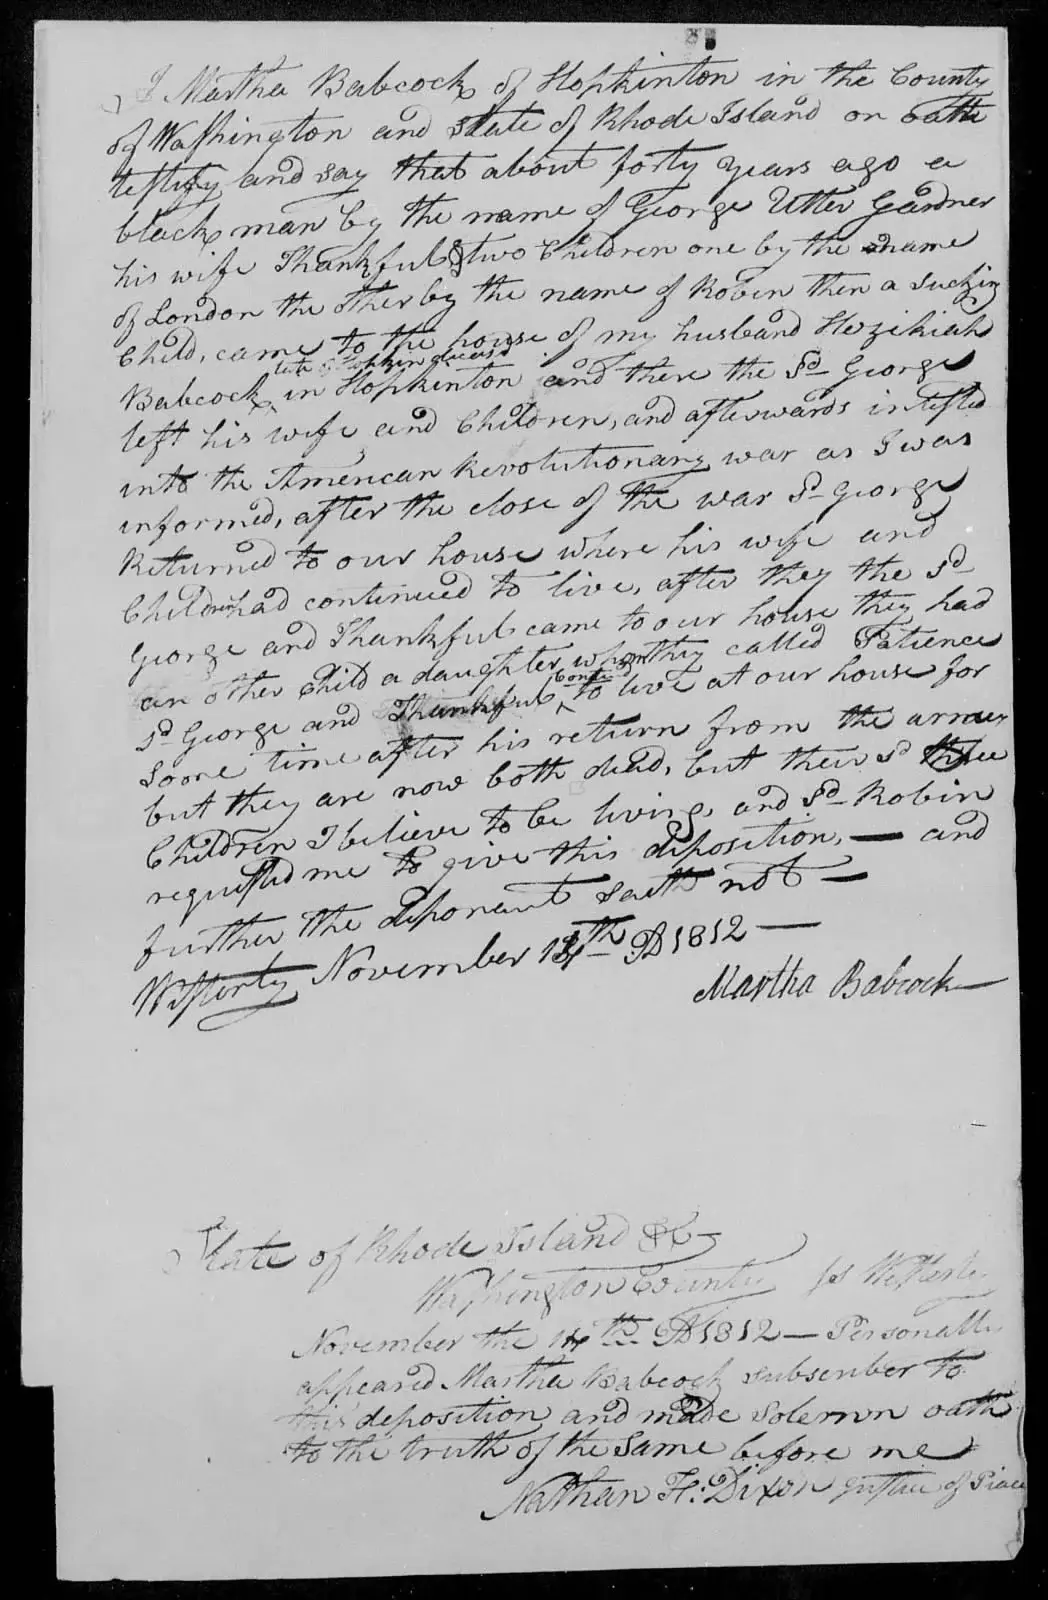 I Martha Babcock of Hopkinton in the County
of Washington and State of Rhode Island on oath
testify and say that about forty years ago a
black man by the name of George Utter Gardner
his wife Thankful & two Children one by the name
of London the other by the name of Robin then a Sucking
Child, came to the house of my husband Hezikiah
late of Hopkinton deceasd
Babcock, in Hopkinton and there the Sd George
left his wife and Children, and afterwards inlisted
into the American Revolutionary war as I was
informed, after the close of the war Sd George
Returned to our house where his wife and
Children had continued to live, after they the Sd
George and Thankful came to our house they had
an other Child a daughter whom they called Patience
Sd George and Thankful continued to live at our house for
some time after his return from the army
but they are now both dead, but their Sd three
Children I believe to be living, and Sd Robin
requested me to give this deposition, — and
further the deponent saith not —
Westerly November 14th AD 1812 —
Martha Babcock
State of Rhode Island &c
Washington County Ss Westerly
November the 14th AD 1812 — Personally
appeared Martha Babcock subscriber to
this deposition and made Solemn oath
to the truth of the Same before me
Nathan F: Dixon Justice of Peace